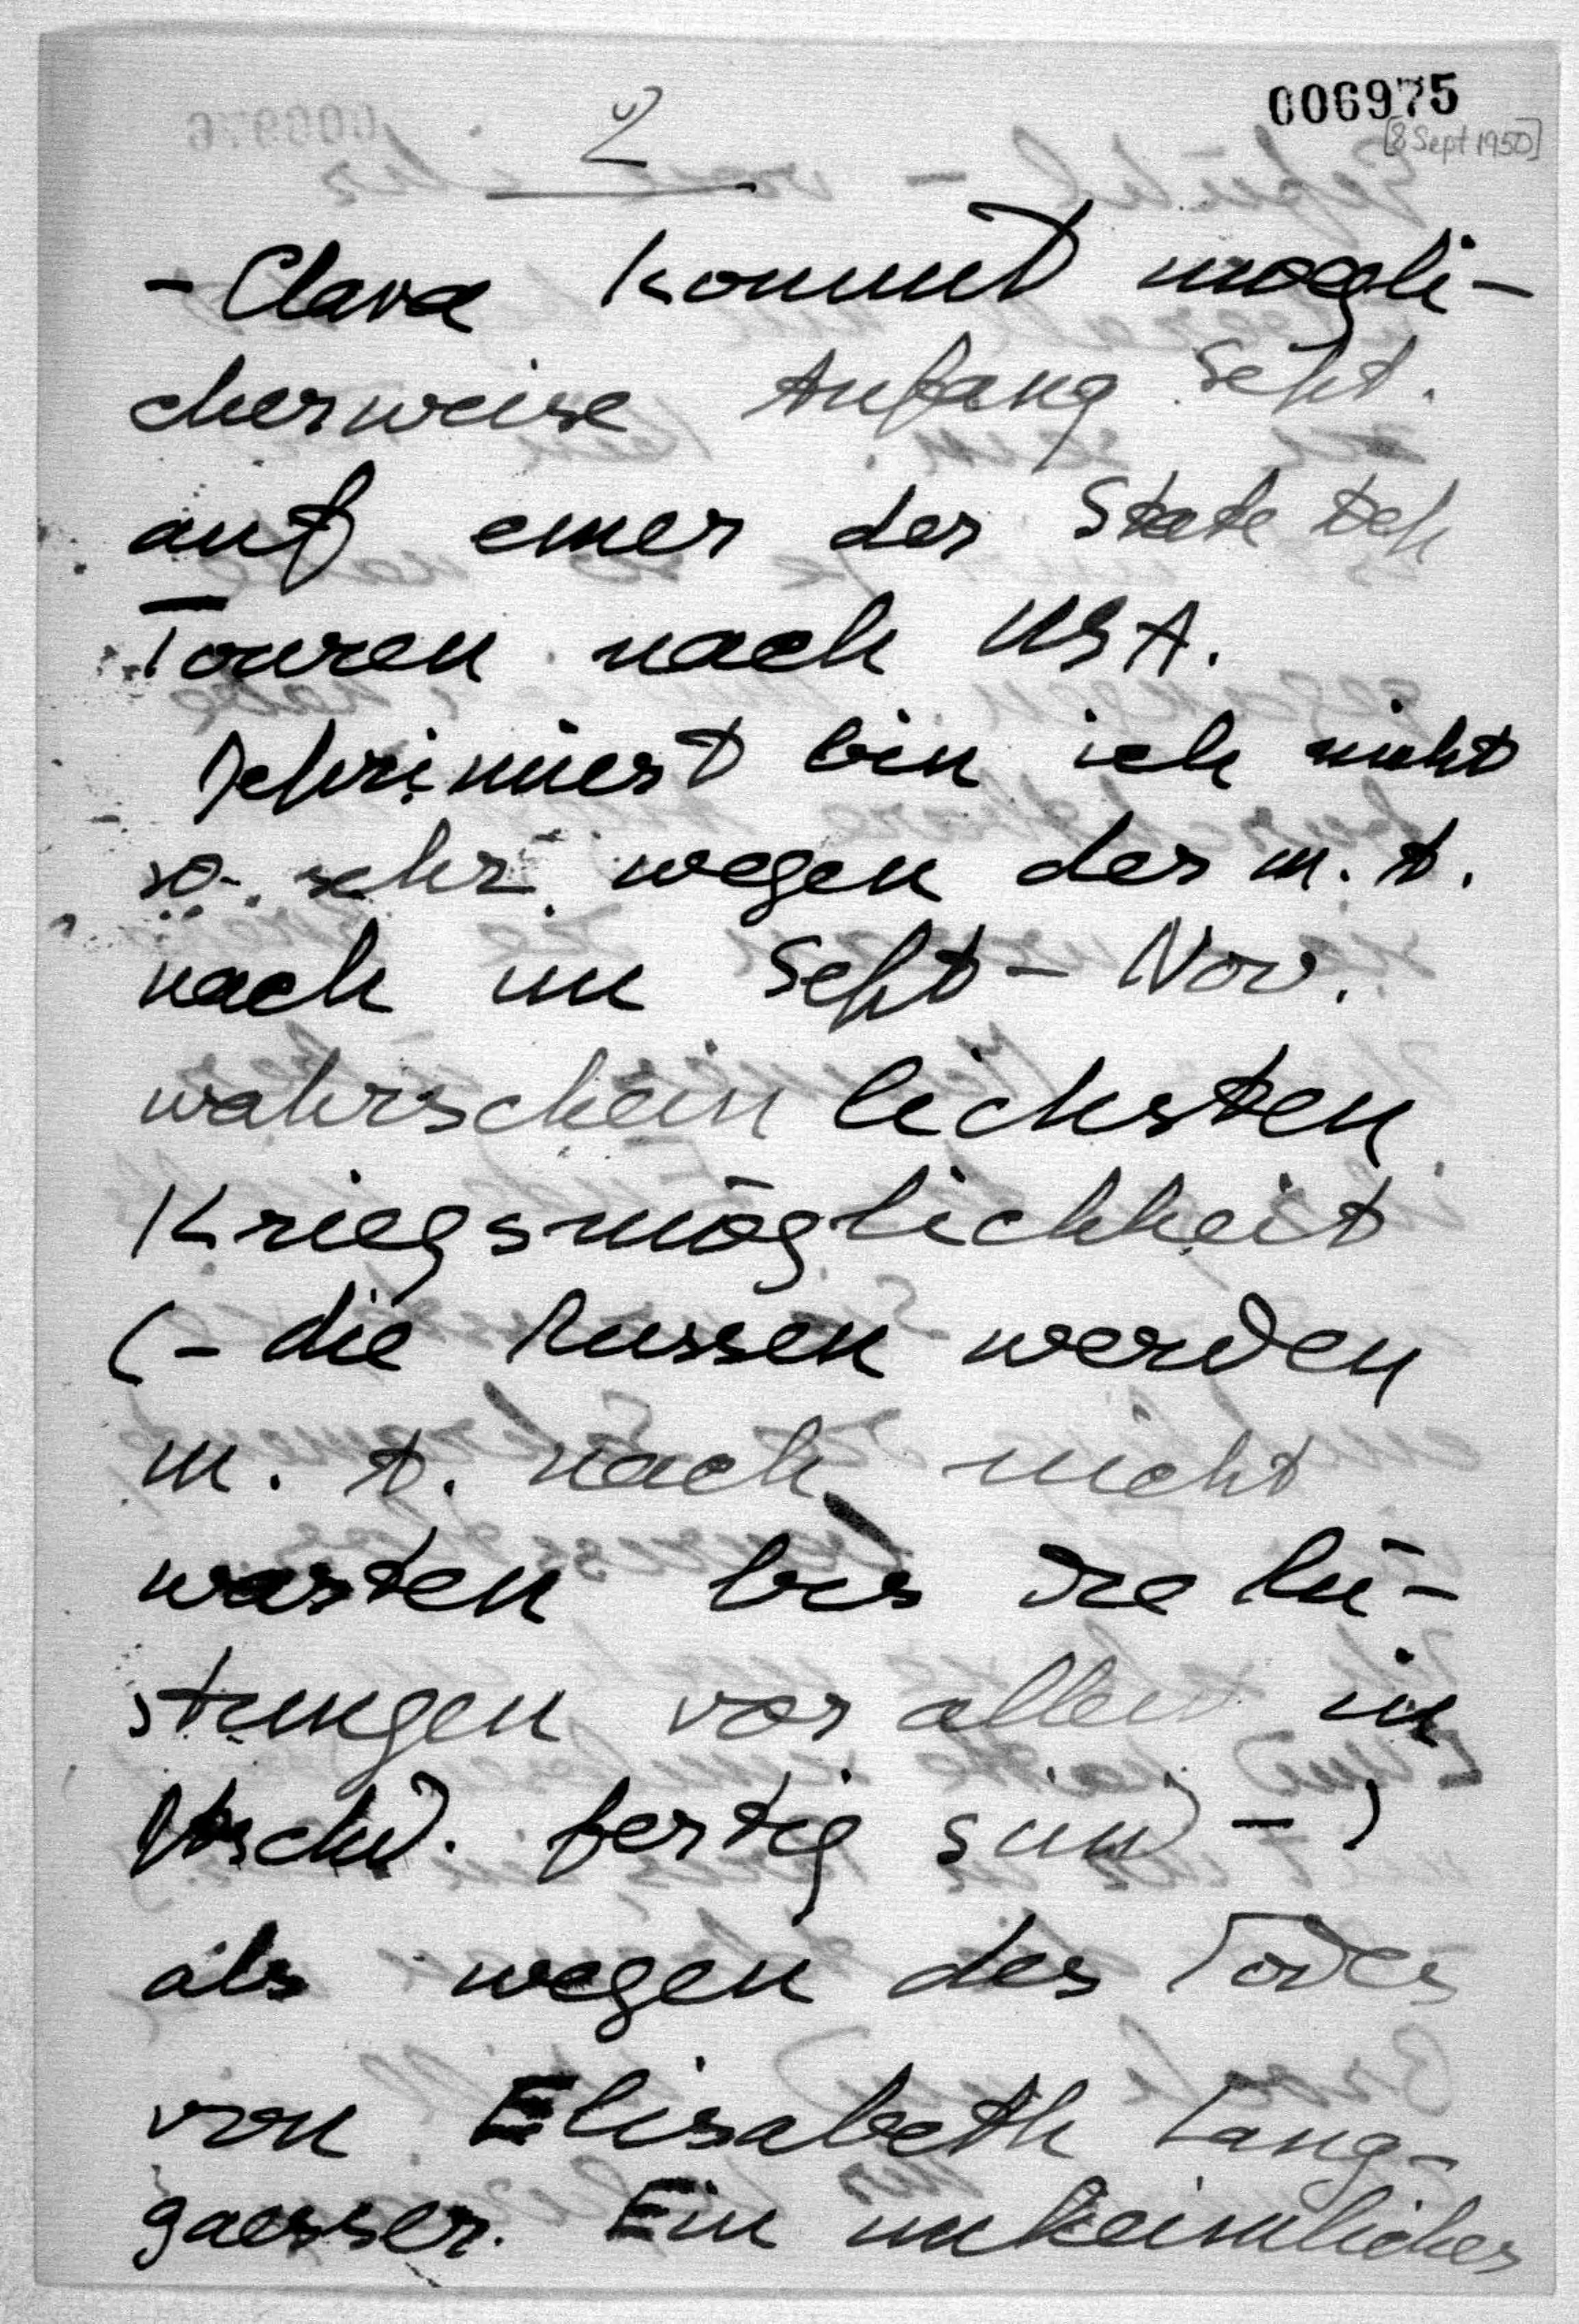 006975
[8 Sept 1950]
2
- Clara kommt moegli-
cherweise Anfang Sept.
auf einer der State Dep
Touren nach USA.
Deprimiert bin ich nicht
so sehr wegen der m. A.
nach im Sept - Nov.
wahrscheinlichsten
Kriegsmöglichkeit
(- die Russen werden
m. A. nach nicht
warten bis die Rü-
stungen vor allem in
Dtschld. fertig sind -)
als wegen des Todes
von Elisabeth Lang-
gaesser. Ein unheimliches